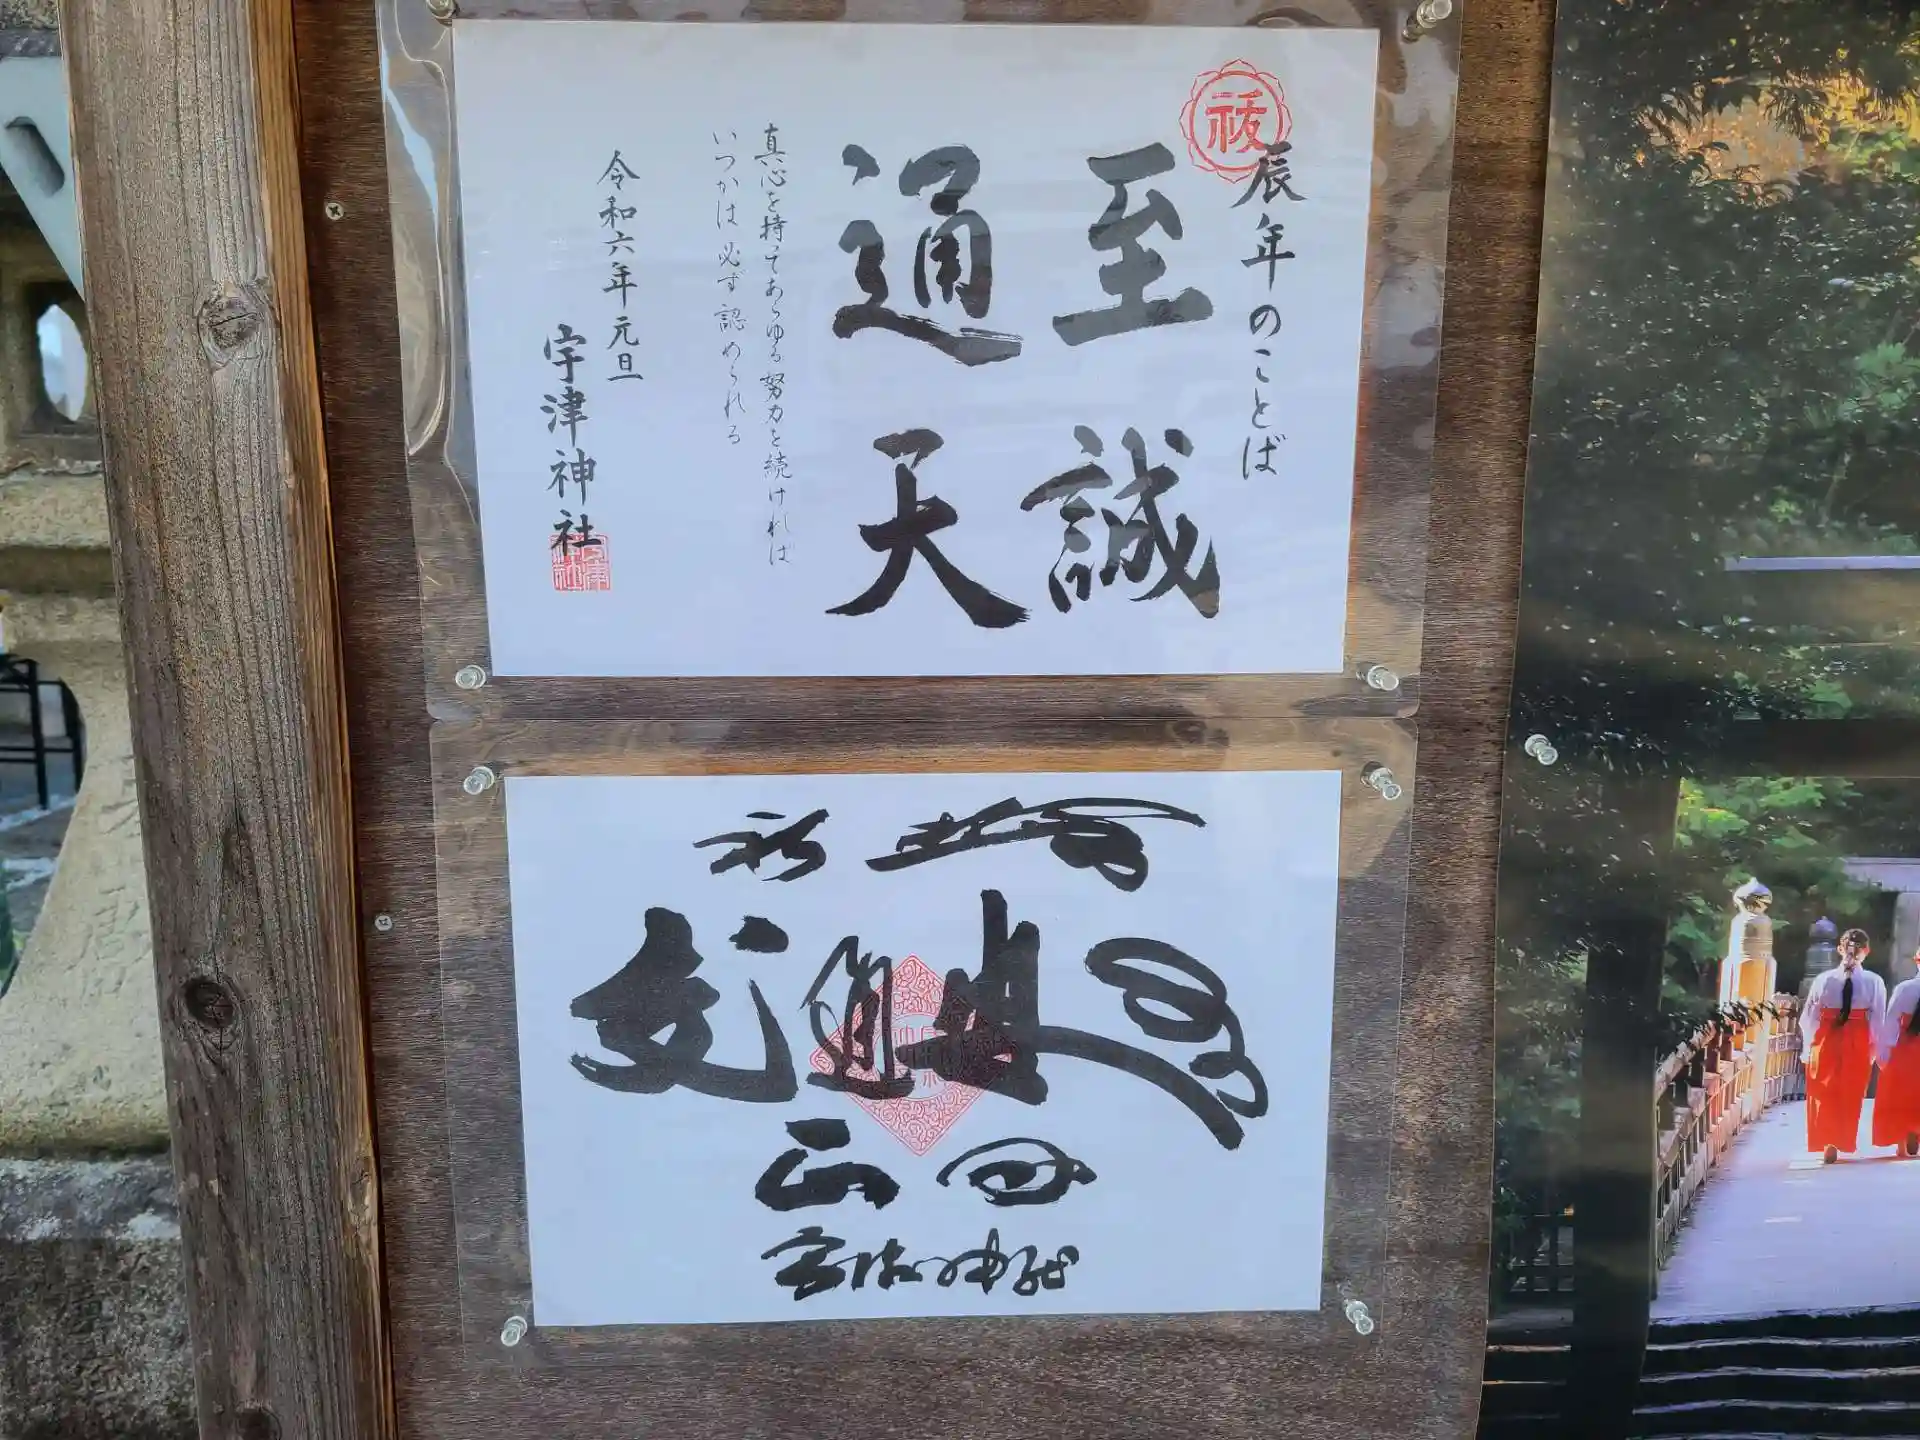 祓
辰年のことば
至誠
通天
真心を持ってあらゆる努力を続ければ
いつかは必ず認められる
令和六年元旦
宇津神社
祈
交通